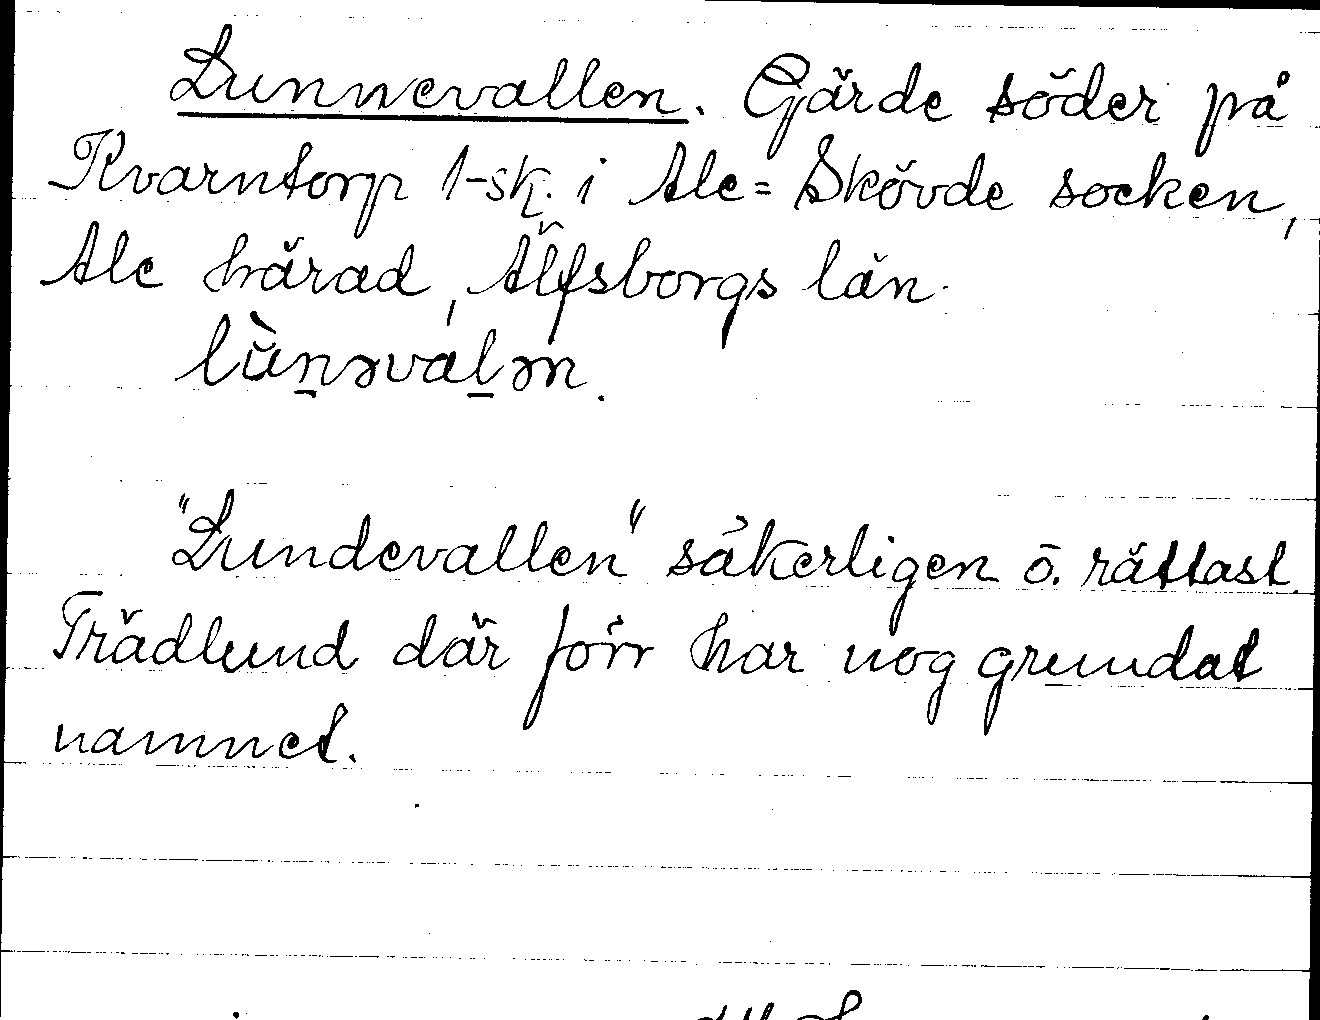 Lunnevallen. Gärde söder på
Kvarntorp 1-sk. i Ale=Skövde socken,
Ale härad, Älfsborgs län.
lùn̠əval̠ən.
"Lundevallen" säkerligen ö. rättast.
Trädlund där förr har nog grundat
namnet.